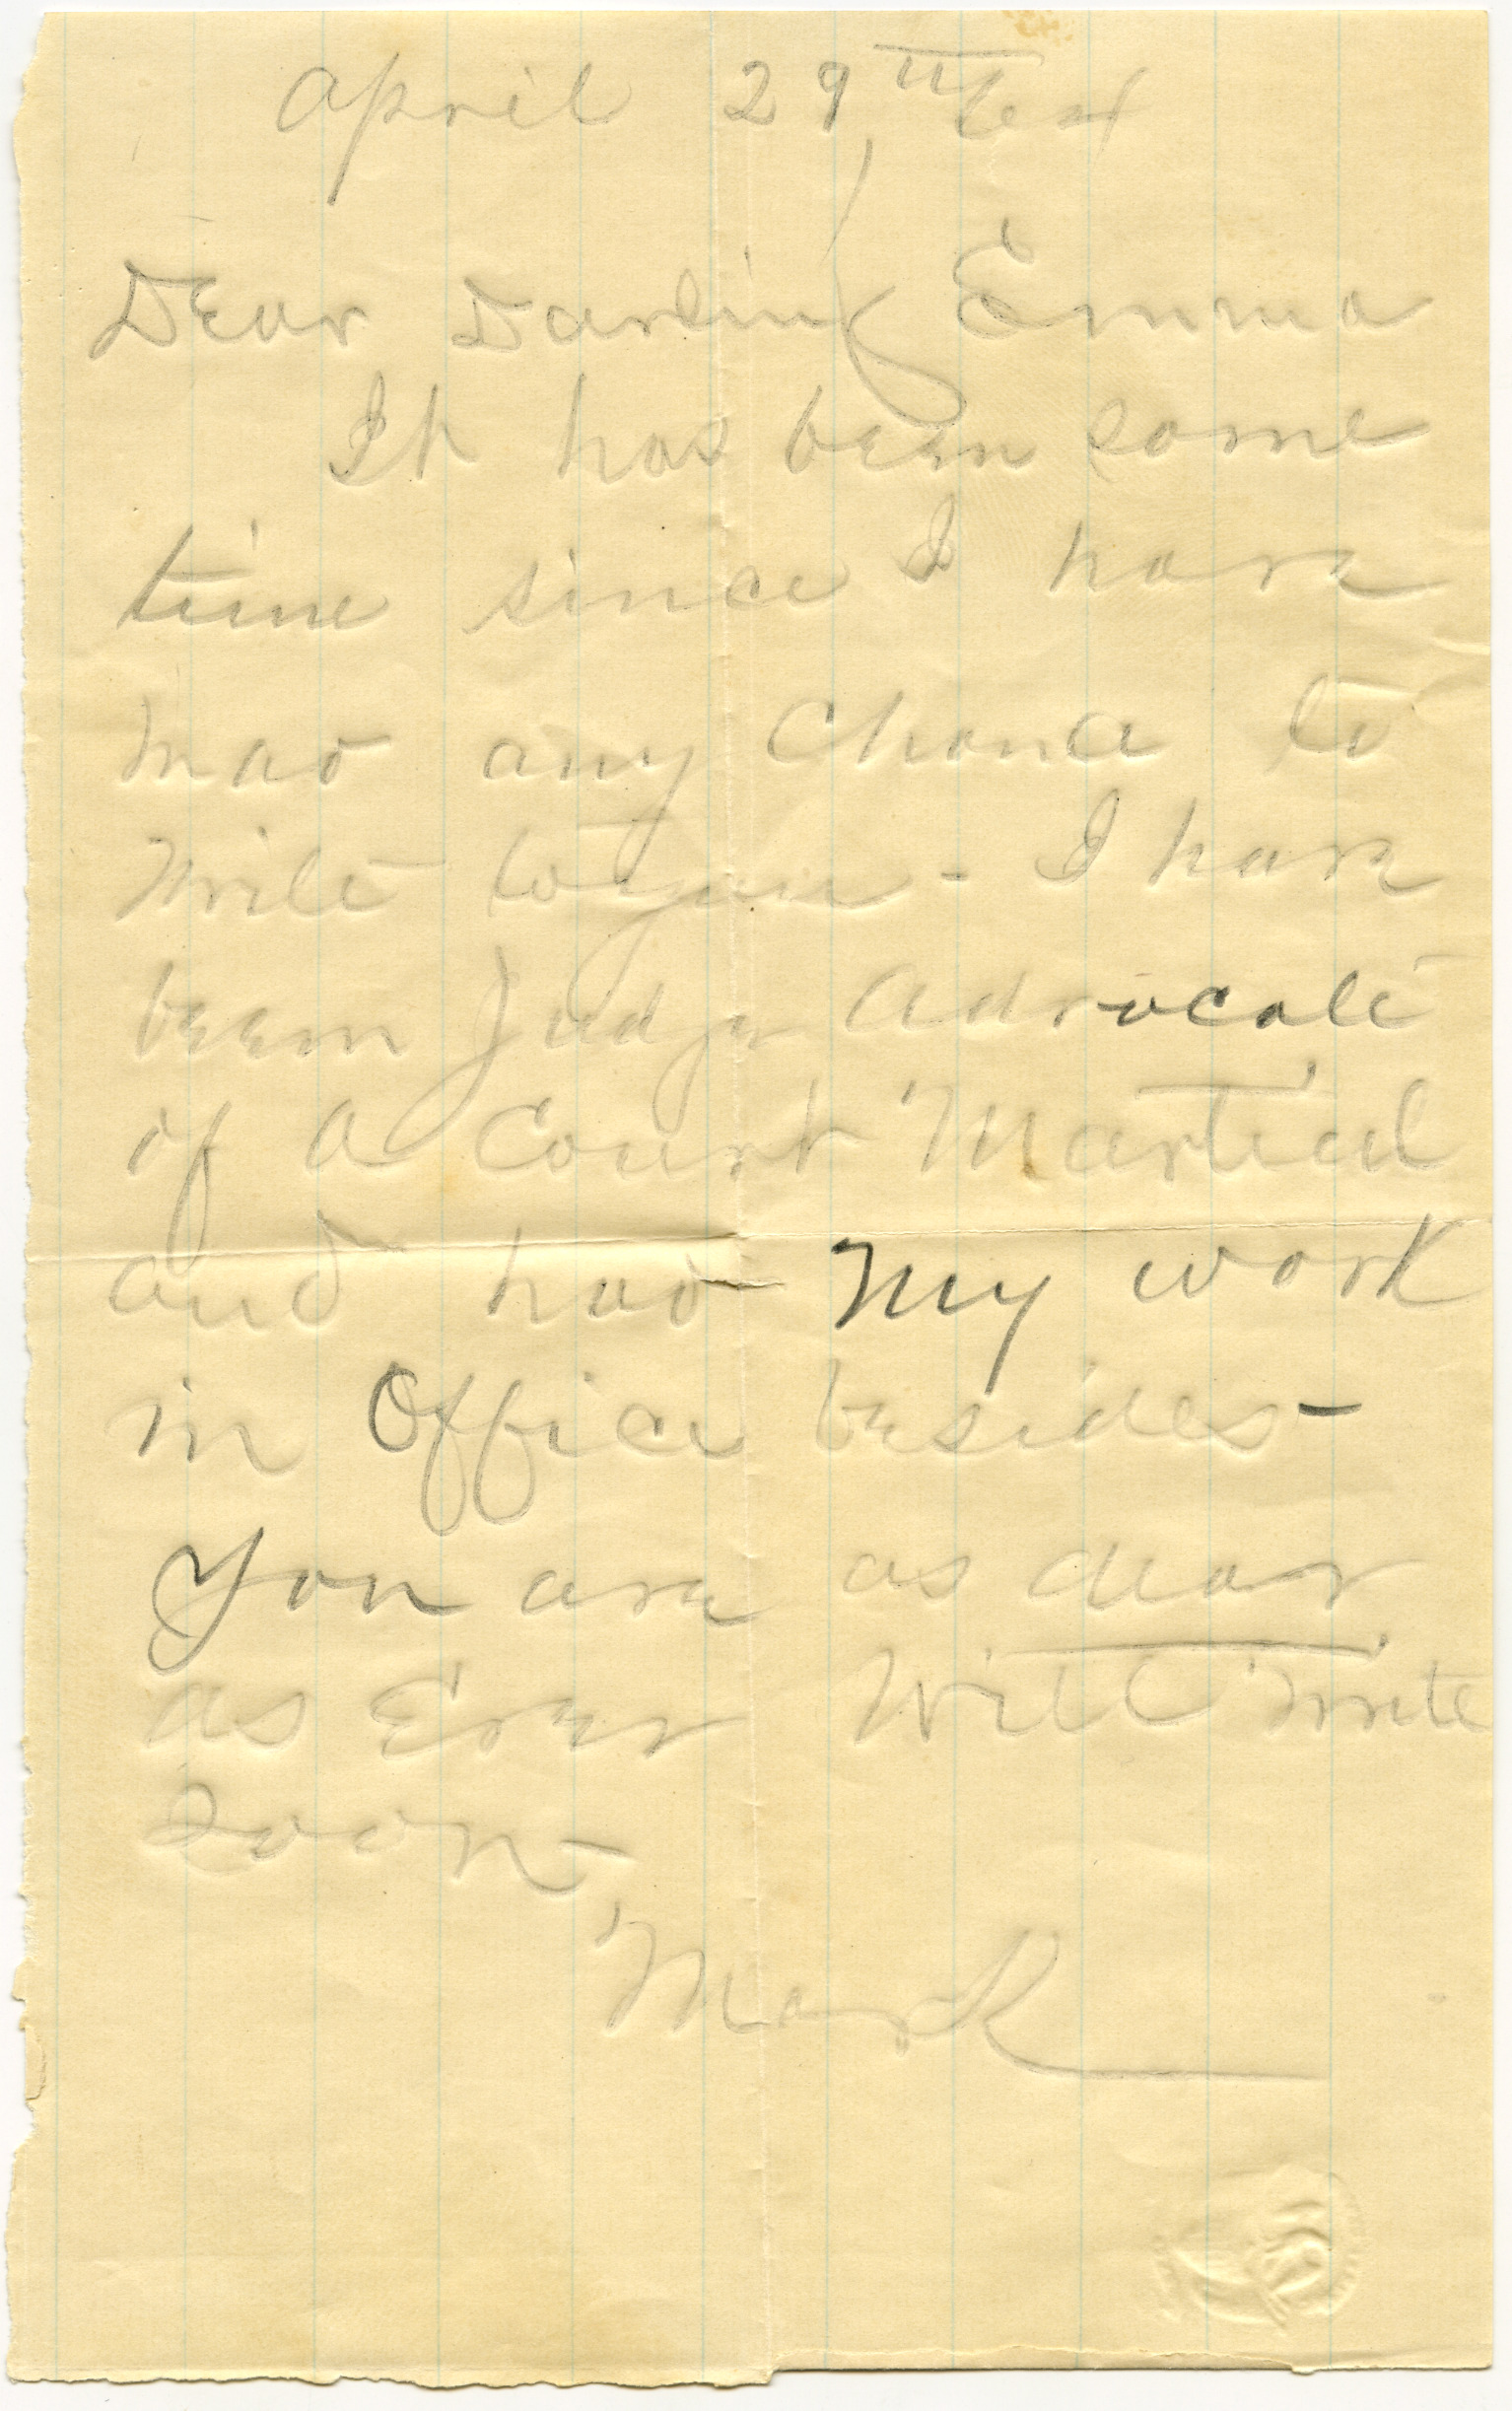 April 29th 64
Dear Darling Emma
It has been some
time since I have
had any chance to
write to you - I have
been Judge Advocate
of a Court Martial
and had my work
in Office besides -
You are as dear
as Ever Will write
soon -
Mark